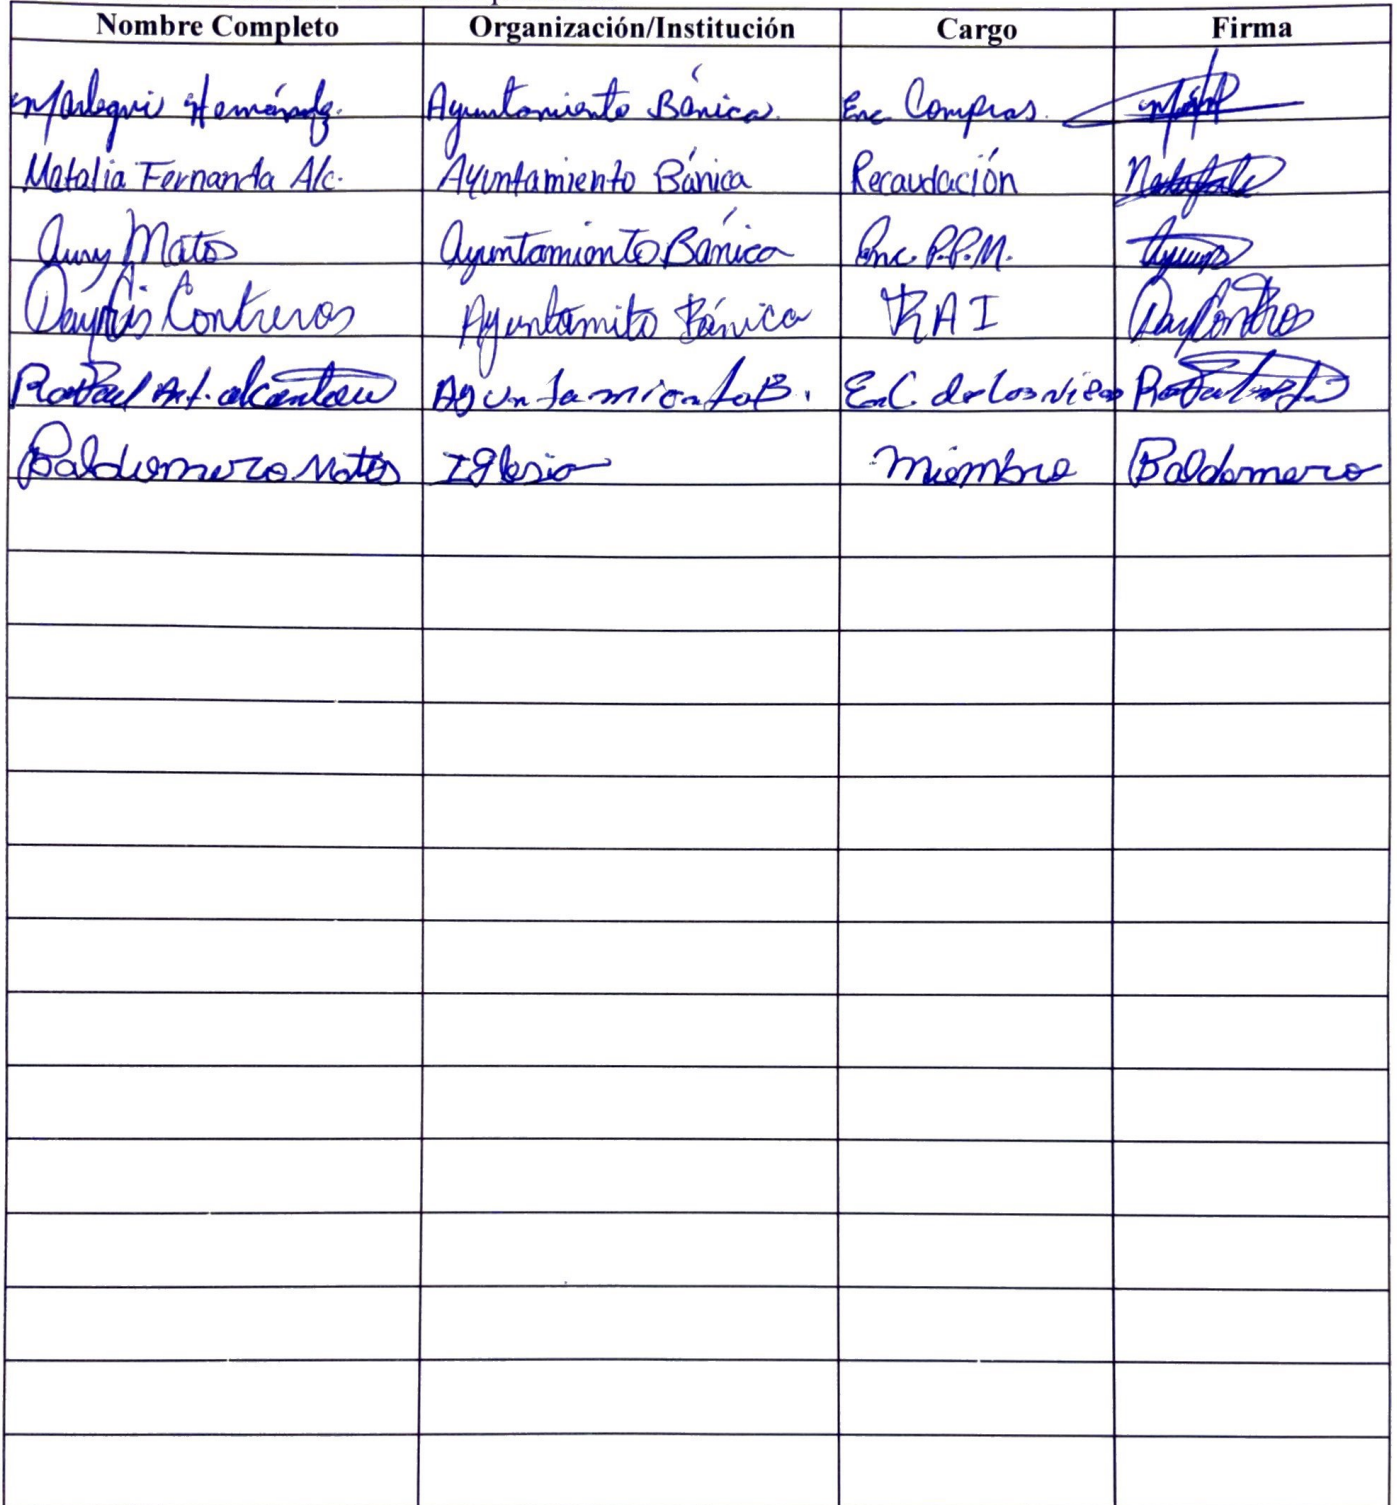 Nombre Completo Organización/Institución Cargo Firma
Marlequi Hernández. Ayuntamiento Bánica. Enc Compras.
Natalia Fernanda Alc. Ayuntamiento Bánica Recaudación
Aury Matos Ayuntamiento Bánica Enc. P.P.M.
Contreras Ayuntamito Bánica RAI
Rafael Ant. alcantara Ayuntamiento B. Enc. de los
Baldomero Matos Iglesia Miembro Baldomero